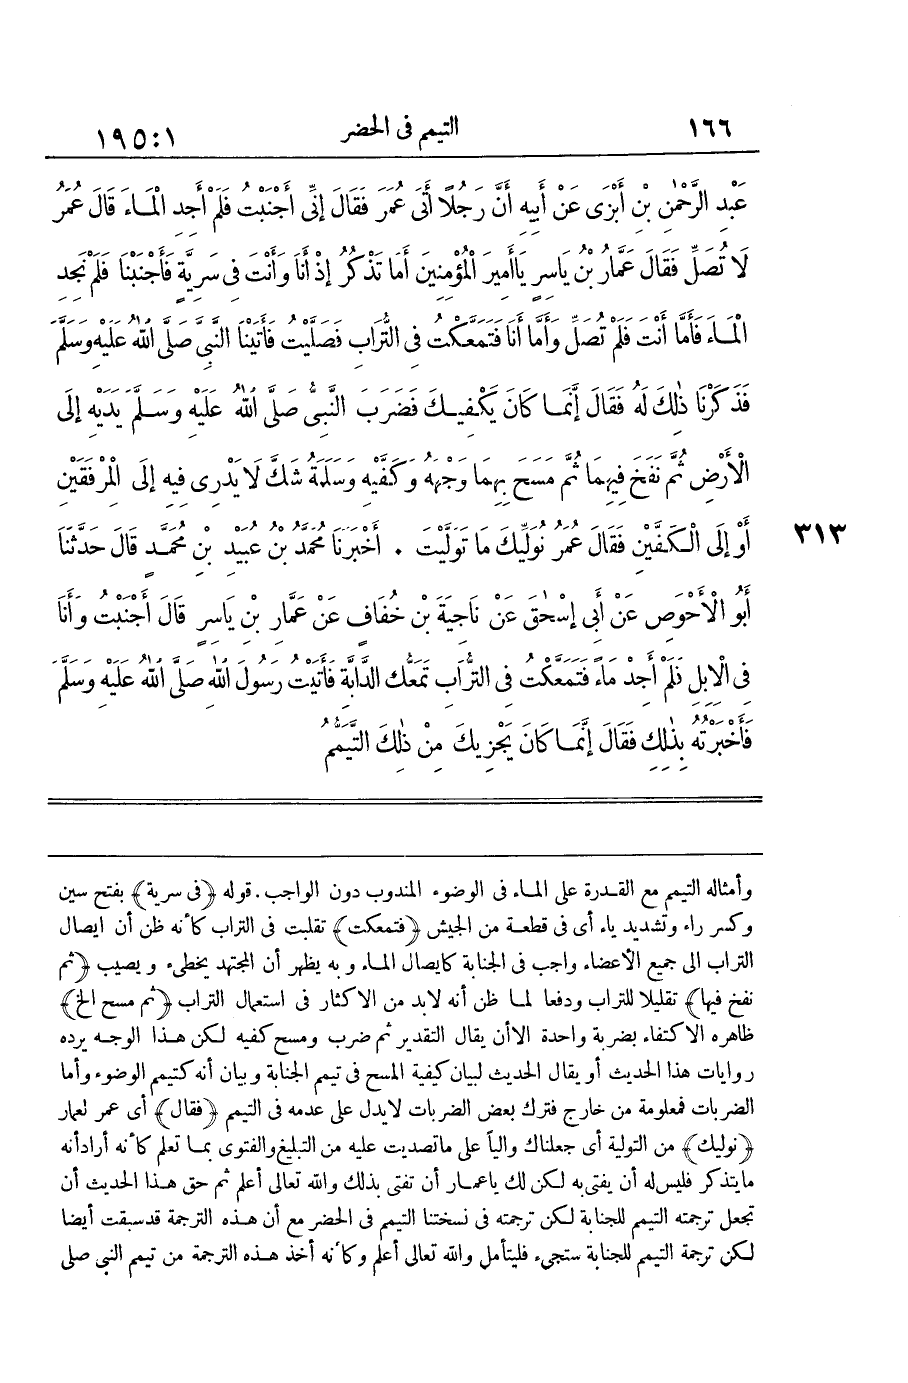 ١٦٦ التيمم فى الحضر ١٩٥:١
عَبْدِ الرَّحْمٰنِ بْنِ أَبْزَى عَنْ أَبِيهِ أَنَّ رَجُلًا أَتَى عُمَرَ فَقَالَ إِنِّى أَجْنَبْتُ فَلَمْ أَجِدِ الْمَاءَ قَالَ عُمَرُ
لَا تُصَلِّ فَقَالَ عَمَّارُ بْنُ يَاسِرٍ يَاأَمِيرَ الْمُؤْمِنِينَ أَمَا تَذْكُرُ إِذْ أَنَا وَأَنْتَ فِى سَرِيَّةٍ فَأَجْنَبْنَا فَلَمْ نَجِدِ
الْمَاءَ فَأَمَّا أَنْتَ فَلَمْ تُصَلِّ وَأَمَّا أَنَا فَتَمَعَّكْتُ فِى التُّرَابِ فَصَلَّيْتُ فَأَتَيْنَا النَّبِىَّ صَلَّى اللّٰهُ عَلَيْهِ وَسَلَّمَ
فَذَكَرْنَا ذٰلِكَ لَهُ فَقَالَ إِنَّمَا كَانَ يَكْفِيكَ فَضَرَبَ النَّبِىُّ صَلَّى اللّٰهُ عَلَيْهِ وَسَلَّمَ يَدَيْهِ إِلَى
الْأَرْضِ ثُمَّ نَفَخَ فِيهِمَا ثُمَّ مَسَحَ بِهِمَا وَجْهَهُ وَكَفَّيْهِ وَسَلَمَةُ شَكَّ لَا يَدْرِى فِيهِ إِلَى الْمِرْفَقَيْنِ
أَوْ إِلَى الْكَفَّيْنِ فَقَالَ عُمَرُ نُوَلِّيكَ مَا تَوَلَّيْتَ . أَخْبَرَنَا مُحَمَّدُ بْنُ عُبَيْدِ بْنِ مُحَمَّدٍ قَالَ حَدَّثَنَا ٣١٣
أَبُو الْأَحْوَصِ عَنْ أَبِى إِسْحٰقَ عَنْ نَاجِيَةَ بْنِ خُفَافٍ عَنْ عَمَّارِ بْنِ يَاسِرٍ قَالَ أَجْنَبْتُ وَأَنَا
فِى الْإِبِلِ فَلَمْ أَجِدْ مَاءً فَتَمَعَّكْتُ فِى التُّرَابِ تَمَعُّكَ الدَّابَّةِ فَأَتَيْتُ رَسُولَ اللّٰهِ صَلَّى اللّٰهُ عَلَيْهِ وَسَلَّمَ
فَأَخْبَرْتُهُ بِذٰلِكَ فَقَالَ إِنَّمَا كَانَ يَجْزِيكَ مِنْ ذٰلِكَ التَّيَمُّمُ
وأمثاله التيمم مع القدرة على الماء فى الوضوء المندوب دون الواجب . قوله ﴿فى سرية﴾ بفتح سين
وكسر راء وتشديد ياء أى فى قطعة من الجيش ﴿فتمعكت﴾ تقلبت فى التراب كأنه ظن أن ايصال
التراب الى جميع الأعضاء واجب فى الجنابة كايصال الماء وبه يظهر أن المجتهد يخطىء ويصيب ﴿ثم
نفخ فيها﴾ تقليلا للتراب ودفعا لما ظن أنه لابد من الاكثار فى استعمال التراب ﴿ثم مسح الخ﴾
ظاهره الاكتفاء بضربة واحدة الاأن يقال التقدير ثم ضرب ومسح كفيه لكن هذا الوجه يرده
روايات هذا الحديث أو يقال الحديث لبيان كيفية المسح فى تيمم الجنابة وبيان أنه كتيمم الوضوء وأما
الضربات فمعلومة من خارج فترك بعض الضربات لايدل على عدمه فى التيمم ﴿فقال﴾ أى عمر لعمار
﴿نوليك﴾ من التولية أى جعلناك والياً على ماتصديت عليه من التبليغ والفتوى بما تعلم كأنه أرادأنه
مايتذكر فليس له أن يفتى به لكن لك ياعمار أن تفتى بذلك والله تعالى أعلم ثم حق هذا الحديث أن
تجعل ترجمته التيمم للجنابة لكن ترجمته فى نسختنا التيمم فى الحضر مع أن هذه الترجمة قدسبقت أيضا
لكن ترجمة التيمم للجنابة ستجىء فليتأمل والله تعالى أعلم وكأنه أخذ هذه الترجمة من تيمم النبى صلى